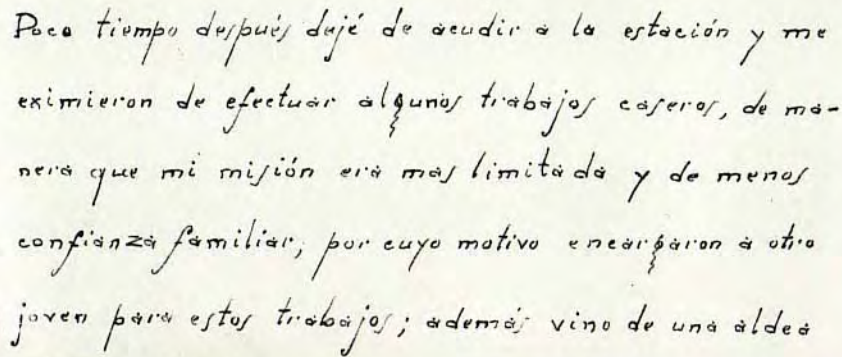 Poco tiempo después dejé de acudir a la estación y me
eximieron de efectuar algunos trabajos caseros, de ma-
nera que mi misión era mas limitada y de menos
confianza familiar, por cuyo motivo encargaron a otro
joven para estos trabajos; además vino de una aldea